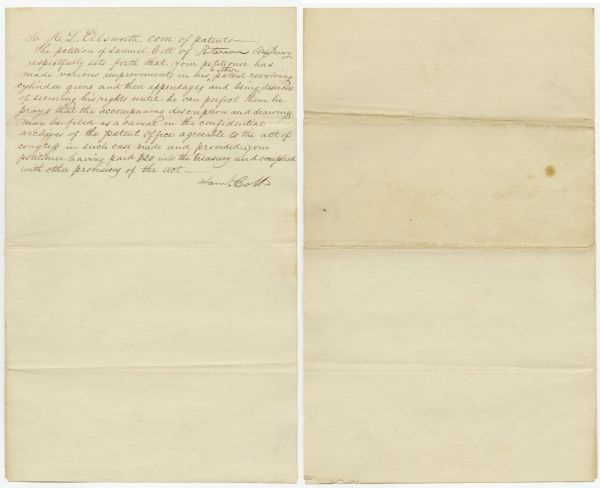 To H. L. Ellsworth com: of patents—
The petition of Samuel Colt of Paterson N Jersey
respectfully sets forth that, your petitioner has
made various improvements in his patent revolving
cylinder guns and their appendages and being desirous
of securing his rights until he can perfect them he
prays that the accompaning description and drawing
may be filed as a caveat in the confidential
archives of the patent office agreeable to the act of
congress in such case made and provided, your
petitioner having paid $20 into the treasury and complied
with other provisions of the act—
Saml. Colt